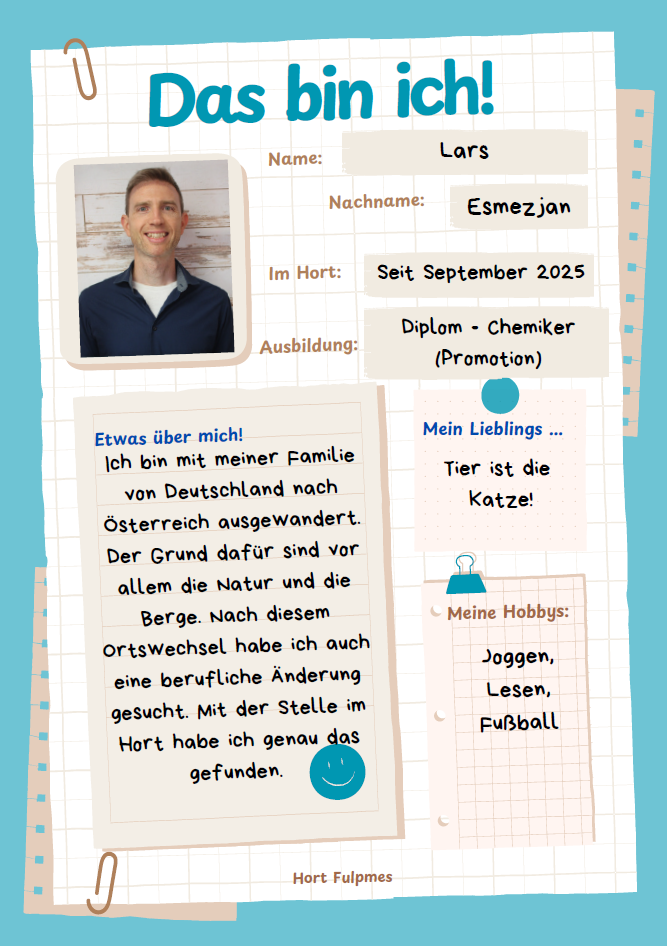 Das bin ich!
Name: Lars
Nachname: Esmezjan
Im Hort: Seit September 2025
Ausbildung: Diplom - Chemiker
(Promotion)
Etwas über mich!
Ich bin mit meiner Familie
von Deutschland nach
Österreich ausgewandert.
Der Grund dafür sind vor
allem die Natur und die
Berge. Nach diesem
Ortswechsel habe ich auch
eine berufliche Änderung
gesucht. Mit der Stelle im
Hort habe ich genau das
gefunden.
Mein Lieblings ...
Tier ist die
Katze!
Meine Hobbys:
Joggen,
Lesen,
Fußball
Hort Fulpmes